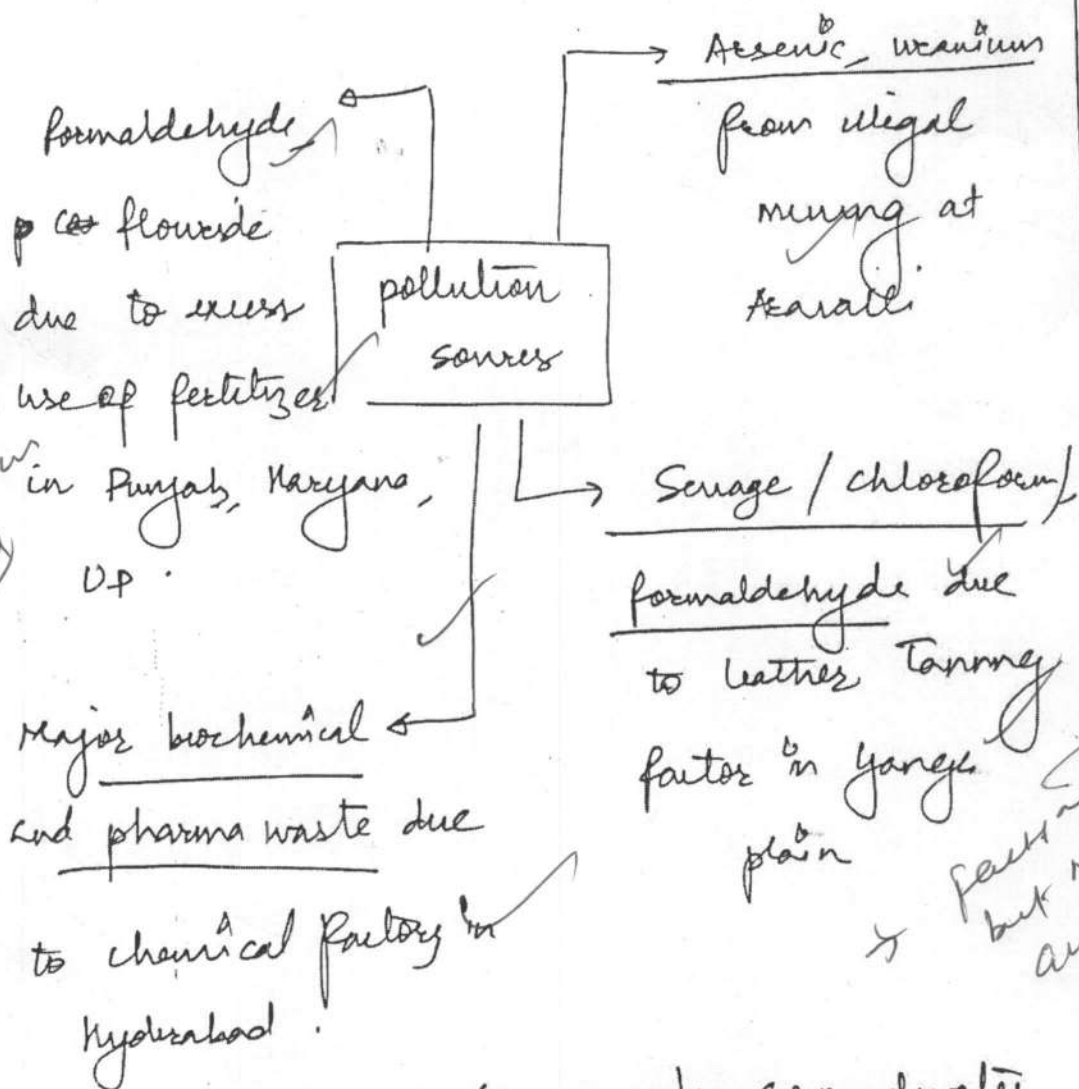 formaldehyde
flouride
due to excess
use of fertilizer
in Punjab, Haryana,
UP.
Arsenic, uranium
from illegal
mining at
Aravalli.
pollution
sources
Sewage / chloroform /
formaldehyde due
to leather Tanning
factor in Ganga
plain
Major biochemical
and pharma waste due
to chemical factory in
Hyderabad.
but